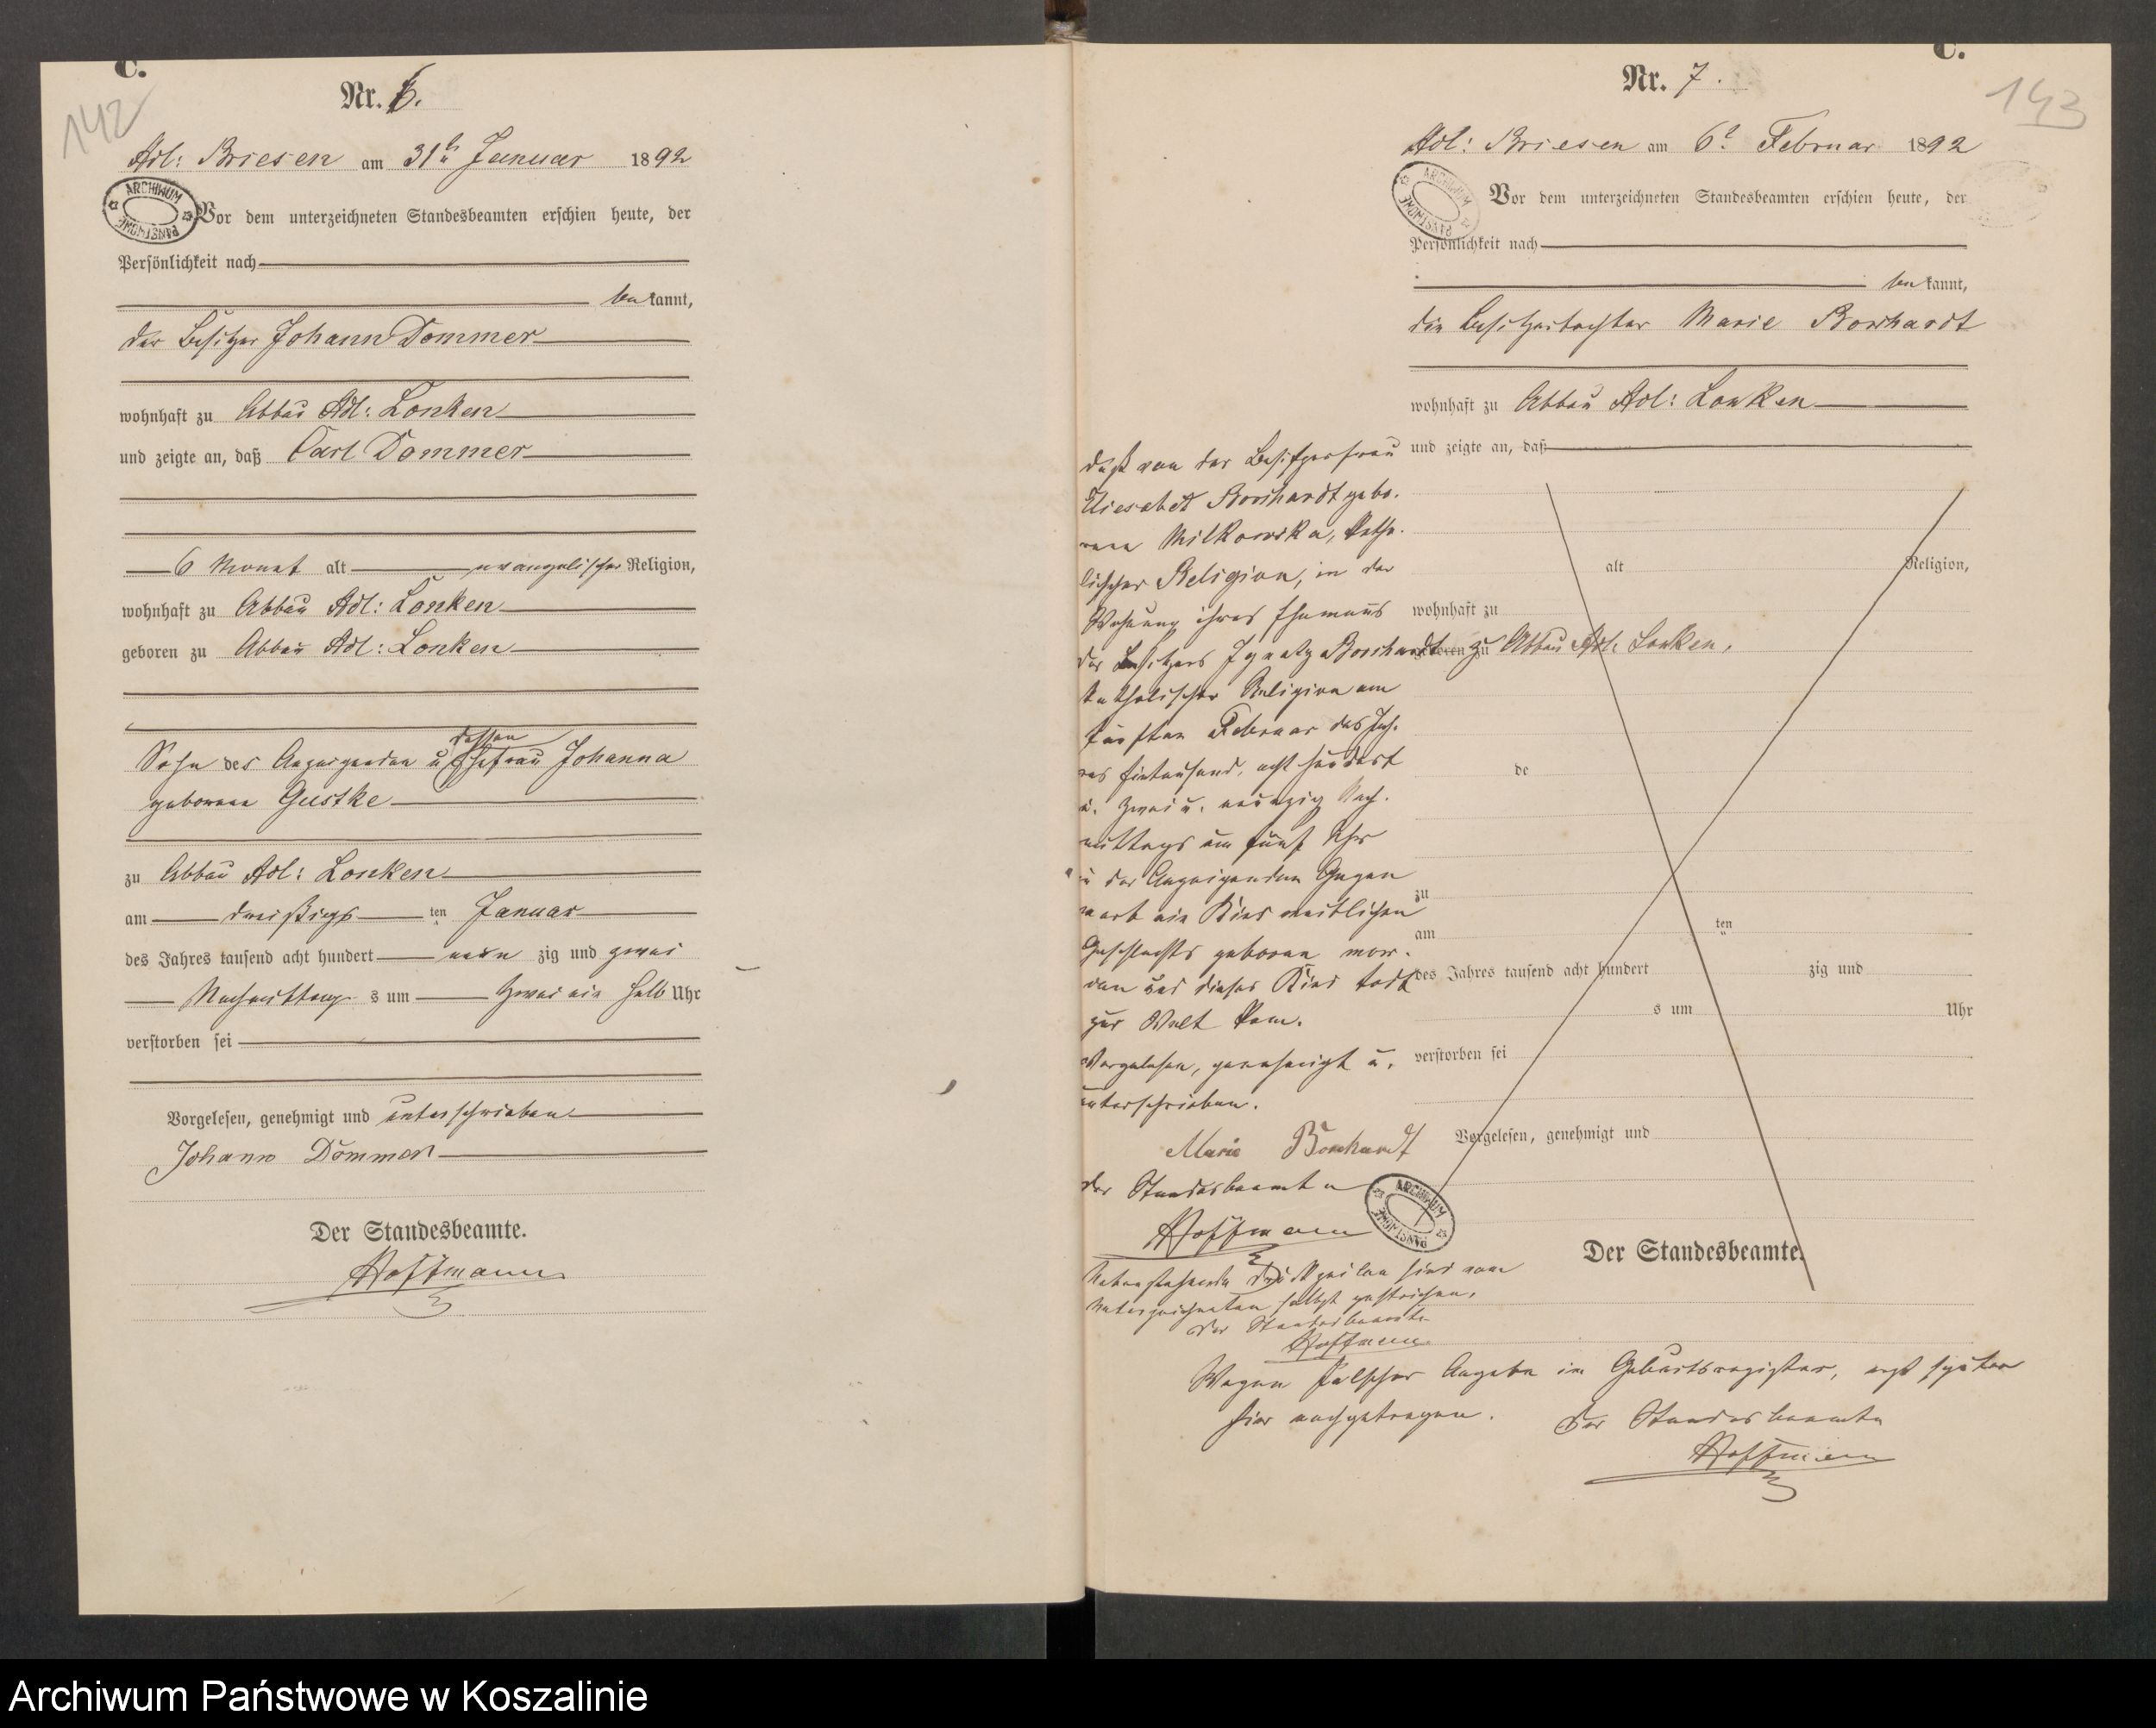 C.
Nr. 6.
142
Adl: Briesen am 31ten Januar 1892
ARCHIWUM PAŃSTWOWE
Vor dem unterzeichneten Standesbeamten erschien heute, der
Persönlichkeit nach
bekannt,
der Besitzer Johann Dommer
wohnhaft zu Abbau Adl: Lonken
und zeigte an, daß Carl Dommer
6 Monat alt evangelischer Religion,
wohnhaft zu Abbau Adl: Lonken
geboren zu Abbau Adl: Lonken
dessen
Sohn des Anzeigenden u Ehefrau Johanna
geborene Gustke
zu Abbau Adl: Lonken
am dreißigsten Januar
des Jahres tausend acht hundert neunzig und zwei
Nachmittags um zwei ein halb Uhr
verstorben sei
Vorgelesen, genehmigt und unterschrieben
Johann Dommer
Der Standesbeamte.
Hoffmann
C.
Nr. 7.
143
Adl: Briesen am 6t Februar 1892
ARCHIWUM PAŃSTWOWE
Vor dem unterzeichneten Standesbeamten erschien heute, der
Persönlichkeit nach
bekannt,
die Besitzertochter Marie Borchardt
wohnhaft zu Abbau Adl: Lonken
und zeigte an, daß
daß von der Besitzerfrau
Eliesabet Borchardt gebo-
rene Milkowska, katho-
lischer Religion, in der
Wohnung ihres Ehemanns
des Besitzers Ignatz Borchardt zu Abbau Adl: Lonken,
katholischer Religion am
fünften Februar des Jah-
res Eintausend, acht hundert
u. zwei u. neunzig Nach-
mittags um fünf Uhr
in der Anzeigenden Gegen
wart ein Kind weiblichen
Geschlechts geboren wor-
den und dieses Kind todt
zur Welt kam.
Vorgelesen, genehmigt u.
unterschrieben.
Marie Borchardt
der Standesbeamte
Hoffmann
ARCHIWUM PAŃSTWOWE
Nebenstehende Druckzeilen sind vom
Unterzeichneten selbst gestrichen.
Der Standesbeamte
Hoffmann
alt Religion,
wohnhaft zu
geboren zu
de
zu
am ten
des Jahres tausend acht hundert zig und
s um Uhr
verstorben sei
Vorgelesen, genehmigt und
Der Standesbeamte.
Wegen falscher Angabe im Geburtsregister, erst später
hier nachgetragen. Der Standesbeamte
Hoffmann
Archiwum Państwowe w Koszalinie